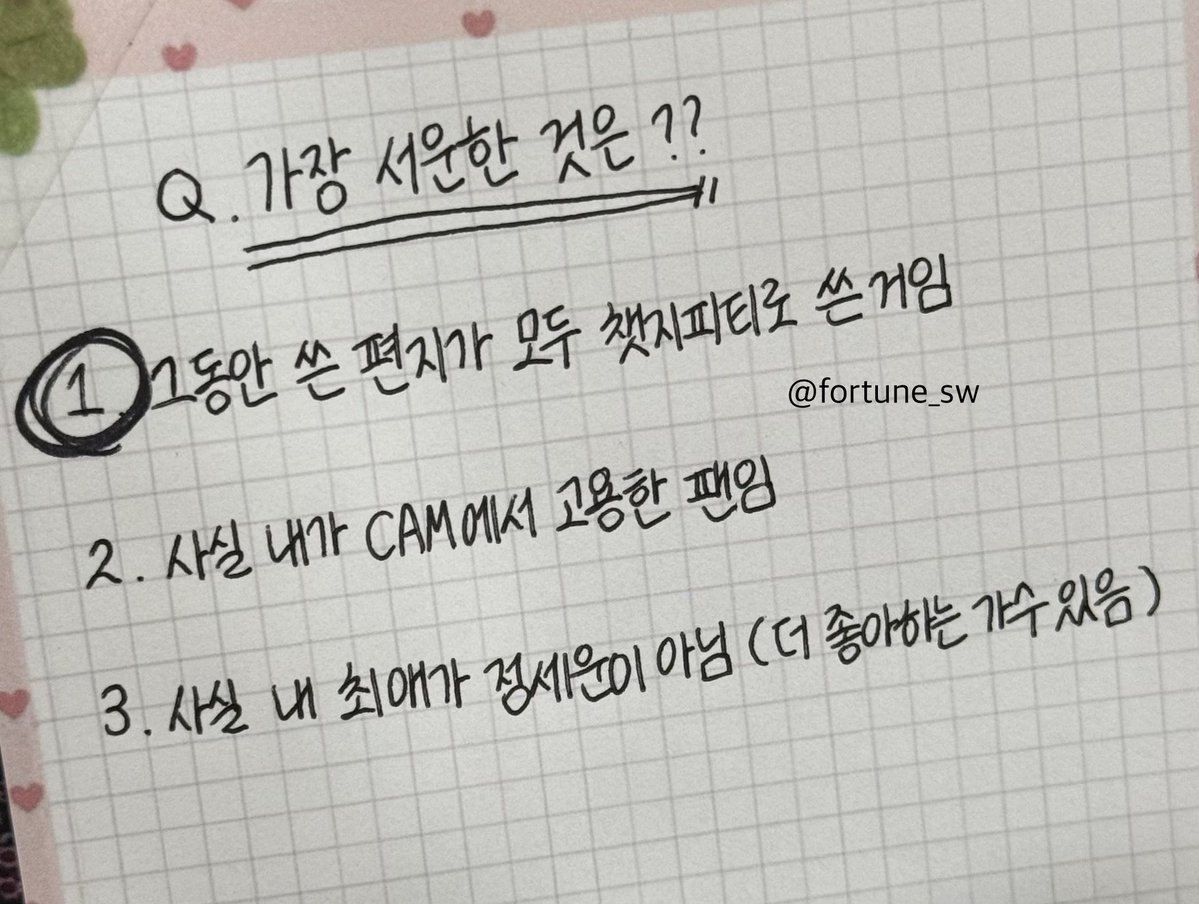 Q. 가장 서운한 것은??
1. 그동안 쓴 편지가 모두 챗지피티로 쓴거임
@fortune_sw
2. 사실 내가 CAM에서 고용한 팬임
3. 사실 내 최애가 정세운이 아님 (더 좋아하는 가수 있음)